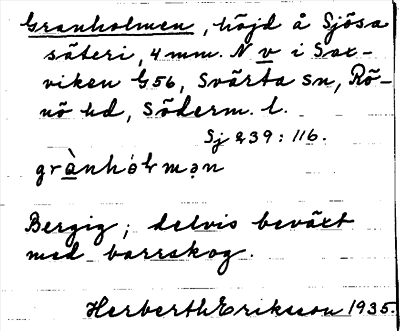 Granholmen, höjd å Sjösa
säteri, 4 mm. N v i Sax-
viken G 56, Svärta sn, Rö-
nö hd, Söderm. l.
Sj 239: 116.
grànhólmən
Bergig; delvis beväxt
med barrskog.
Herberth Eriksson 1935.